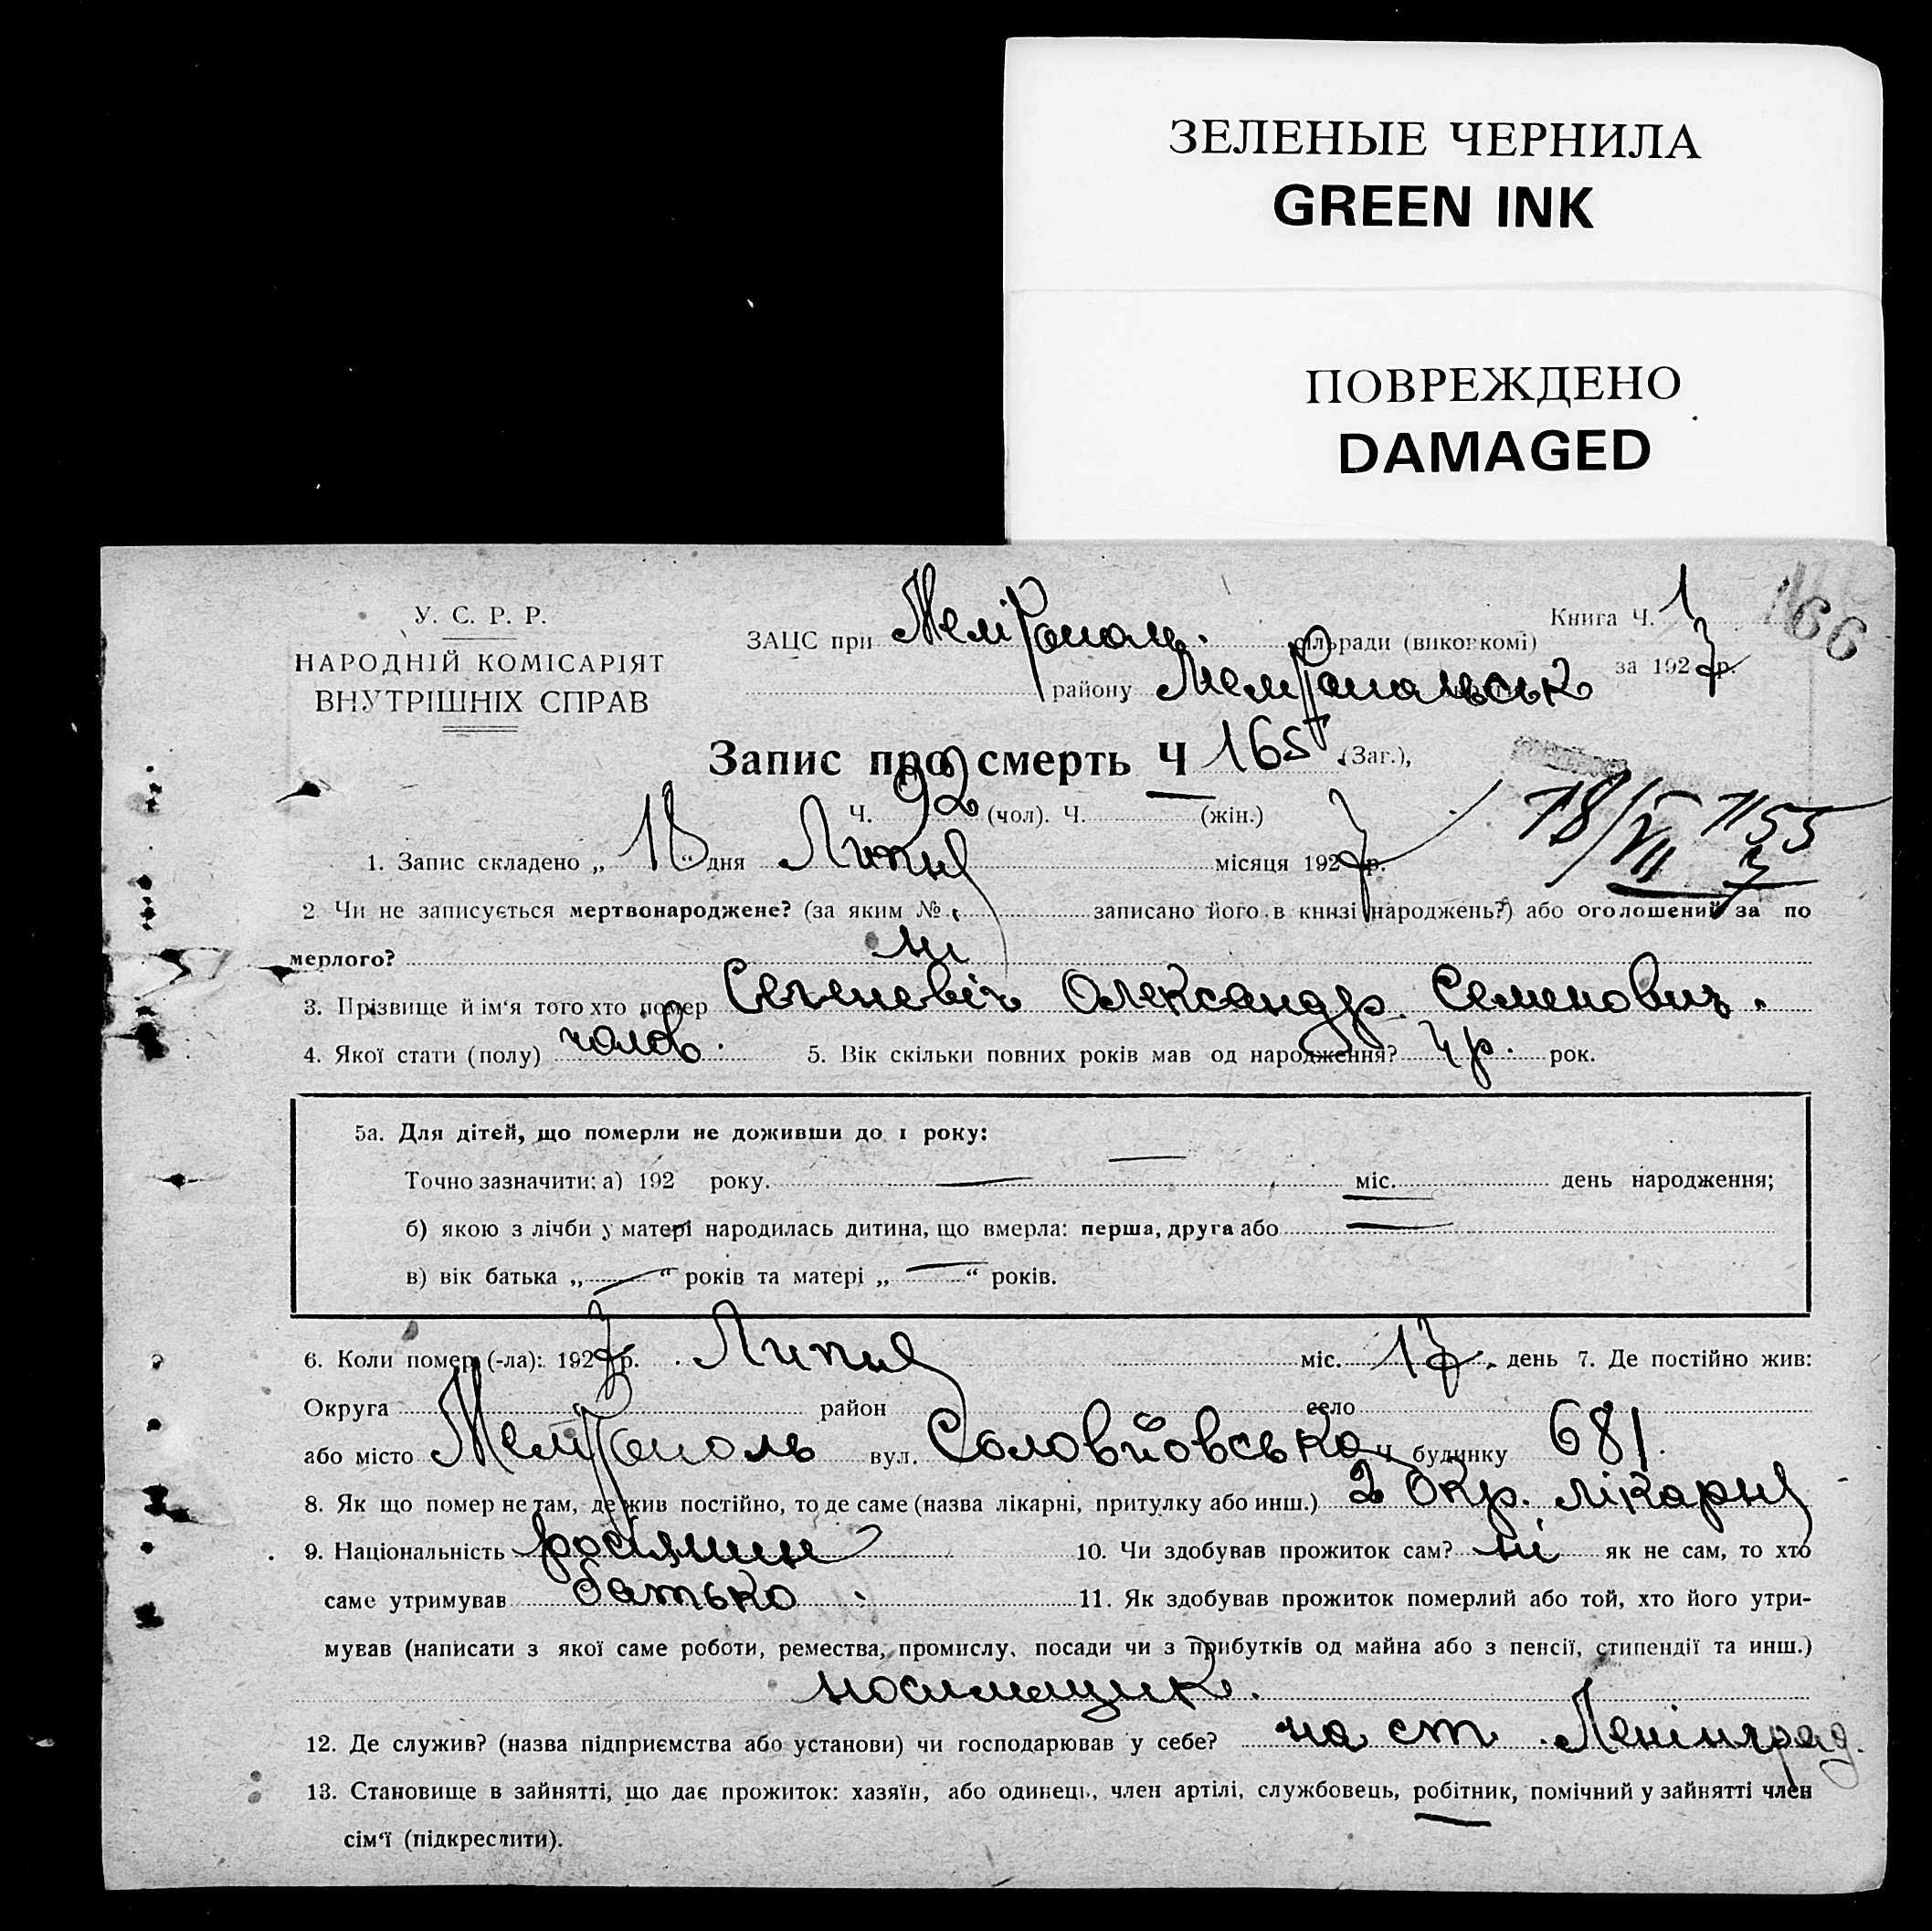 ЗЕЛЕНЫЕ ЧЕРНИЛА
GREEN INK
ПОВРЕЖДЕНО
DAMAGED
166
У. С. Р. Р.
НАРОДНІЙ КОМІСАРІЯТ
ВНУТРІШНІХ СПРАВ
ЗАЦС при Мелітополь. сільради (виконкомі) Книга Ч. 1
району Мелітопольськ за 1927 р.
Запис про смерть Ч 165 (Заг.),
Ч. 92 (чол). Ч. (жін.)
18/VII 7
1. Запис складено „18“ дня Липня місяця 1927 р.
2 Чи не записується мертвонароджене? (за яким № записано його в книзі народжень?) або оголошений за по
мерлого? ні
3. Прізвище й ім'я того хто помер Олександр Семенович.
4. Якої стати (полу) чолов. 5. Вік скільки повних років мав од народження? 4 р. рок.
5а. Для дітей, що померли не доживши до 1 року:
Точно зазначити: а) 192 року. міс. день народження;
б) якою з лічби у матері народилась дитина, що вмерла: перша, друга або
в) вік батька „ “ років та матері „ “ років.
6. Коли помер (-ла): 1927 р. Липня міс. 17. день 7. Де постійно жив:
Округа район село
або місто Мелітополь вул. Соловйовська ч. будинку 681.
8. Як що помер не там, де жив постійно, то де саме (назва лікарні, притулку або инш.) 2 Окр. лікарня
9. Національність росіянин 10. Чи здобував прожиток сам? ні як не сам, то хто
саме утримував батько. 11. Як здобував прожиток померлий або той, хто його утри-
мував (написати з якої саме роботи, ремества, промислу, посади чи з прибутків од майна або з пенсії, стипендії та инш.)
носильщик.
12. Де служив? (назва підприємства або установи) чи господарював у себе? на ст. Ленінград.
13. Становище в зайнятті, що дає прожиток: хазяїн, або одинець, член артілі, службовець, робітник, помічний у зайнятті член
сім'ї (підкреслити).